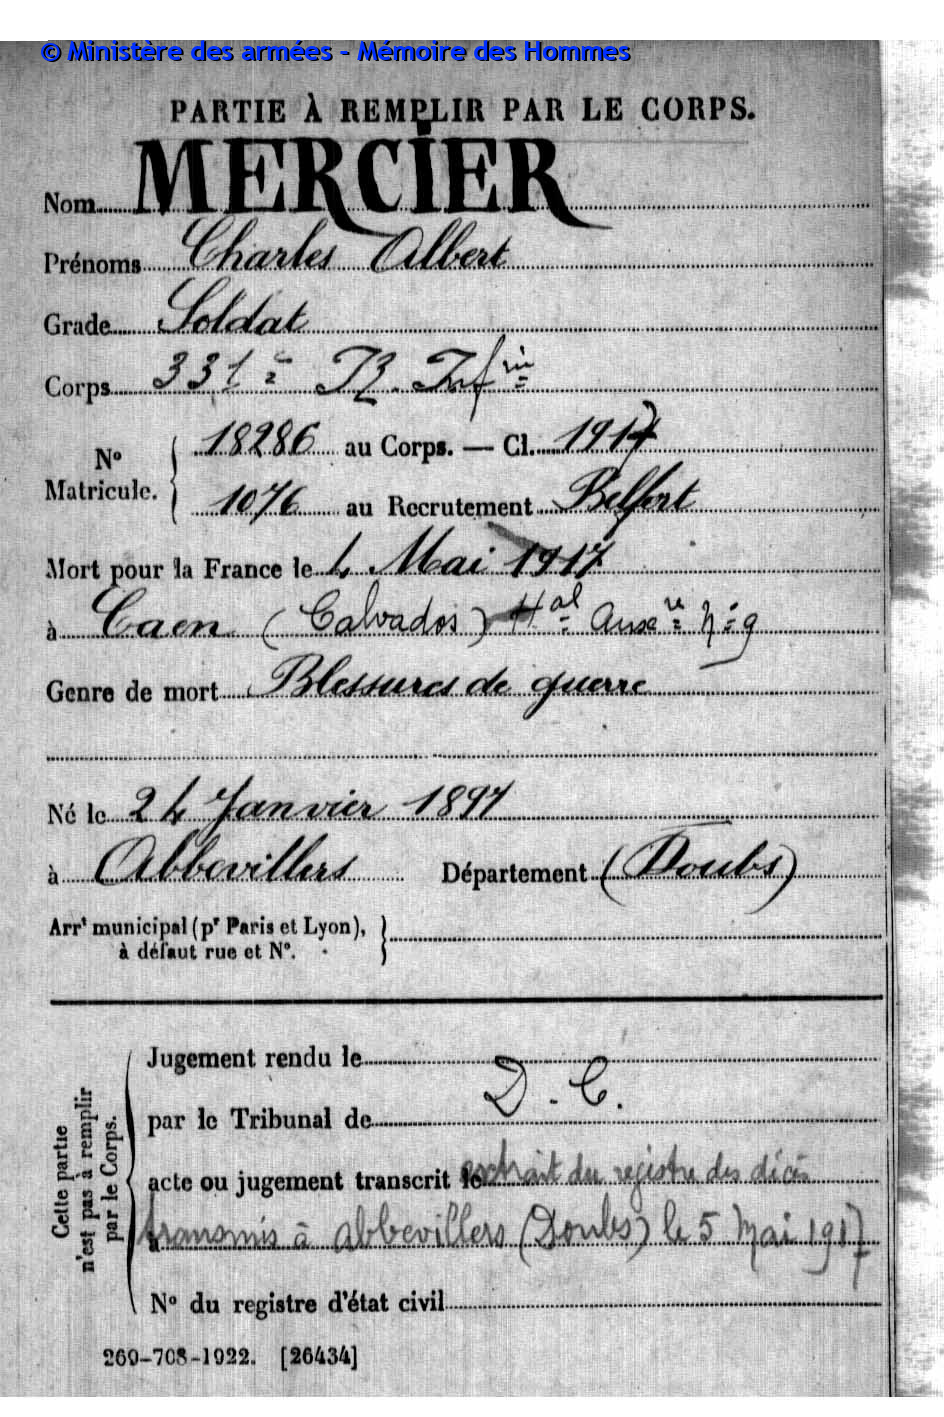 © Ministère des armées - Mémoire des Hommes
PARTIE À REMPLIR PAR LE CORPS.
Nom MERCIER
Prénoms Charles Albert
Grade Soldat
Corps 331e R. Infie
No Matricule. { 18286 au Corps. — Cl. 1917
1076 au Recrutement Belfort
Mort pour la France le 4 Mai 1917
à Caen (Calvados) Hal Auxre No 9
Genre de mort Blessures de guerre
Né le 24 Janvier 1897
à Abbevillers Département (Doubs)
Arrt municipal (pr Paris et Lyon),
à défaut rue et No.
Cette partie n'est pas à remplir par le Corps.
Jugement rendu le
D. C.
par le Tribunal de
acte ou jugement transcrit le extrait du registre des décès
à transmis à Abbevillers (Doubs) le 5 Mai 1917
No du registre d'état civil
269-708-1922. [26434]